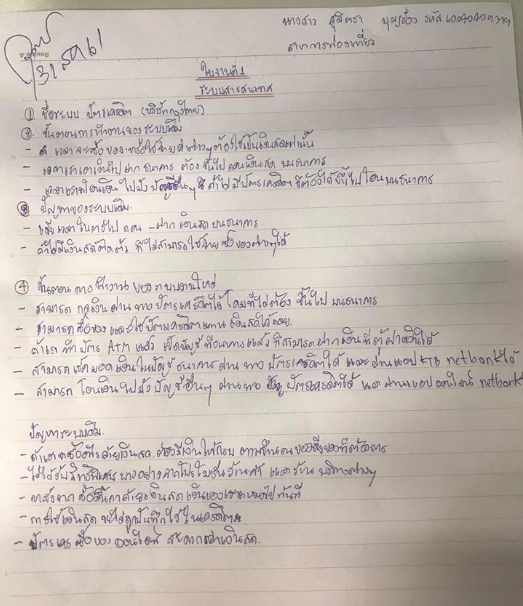 31 สค 61
นางสาว สุมิตรา บุญ รหัส
สาขาการท่องเที่ยว
ใบงานที่ 1
ระบบสารสนเทศ
① ชื่อระบบ บัตรเครดิต (บริษัทกรุงไทย)
② ขั้นตอนการทำงานของระบบเดิม
- เวลาจะซื้อของ ต้องใช้เป็นเงินสดเท่านั้น
- เงินไปฝากธนาคาร ต้องขึ้นไป บนธนาคาร
- โอนเงินไปยังบัญชีอื่นๆ ถ้าไม่มีบัตรเครดิตก็ต้องได้ขึ้นไปโอนบนธนาคาร
③ ปัญหาของระบบเดิม
- เสียเวลาในการไป ถอน - ฝาก เงินสดบนธนาคาร
- ถ้าไม่มีเงินสดติดตัว ก็ไม่สามารถใช้จ่ายซื้อของต่างๆได้
④ ขั้นตอนการทำงานของระบบงานใหม่
- สามารถ กดเงินผ่านทางบัตรเครดิตได้ โดยที่ไม่ต้อง ขึ้นไปบนธนาคาร
- สามารถซื้อของและใช้บัตรเครดิตแทนเงินสดได้เลย
- ทำบัตร ATM และ เปิดบัญชี ธนาคารแล้ว ก็สามารถฝากเงินที่ตู้ฝากเงินได้
- สามารถ เช็คยอดเงินในบัญชีธนาคารผ่านทางบัตรเครดิตได้ และผ่านแอป KTB netbank ได้
- สามารถ โอนเงินไปยังบัญชีอื่นๆ ผ่านทาง บัตรเครดิตได้ และผ่านแอปออนไลน์ netbank
ปัญหาระบบเดิม
- เงินสด ต้องมีเงินให้ครบ ตาม ของสิ่งของที่ต้องการ
- ไม่ได้รับสิทธิพิเศษบางอย่าง ร้านค้า และร้านบริการต่างๆ
- ซื้อสินค้าด้วยเงินสด เงินของเราจะหมดไปทันที
- การใช้เงินสด จะไม่ถูกบันทึกไว้ในเครดิต
- บัตร ซื้อของออนไลน์ สะดวกกว่าเงินสด